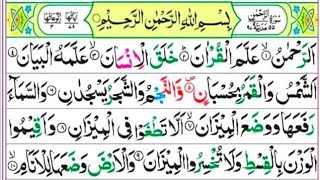 بِسْمِ اللهِ الرَّحْمٰنِ الرَّحِيْمِ
اَلرَّحْمٰنُ ۙ عَلَّمَ الْقُرْاٰنَ ؕ خَلَقَ الْاِنْسَانَ ۙ عَلَّمَهُ الْبَيَانَ
اَلشَّمْسُ وَالْقَمَرُ بِحُسْبَانٍ ۪ وَّالنَّجْمُ وَالشَّجَرُ يَسْجُدٰنِ وَالسَّمَآءَ
رَفَعَهَا وَوَضَعَ الْمِيْزَانَ ۙ اَلَّا تَطْغَوْا فِى الْمِيْزَانِ وَاَقِيْمُوا
الْوَزْنَ بِالْقِسْطِ وَلَا تُخْسِرُوا الْمِيْزَانَ وَالْاَرْضَ وَضَعَهَا لِلْاَنَامِ ۙ